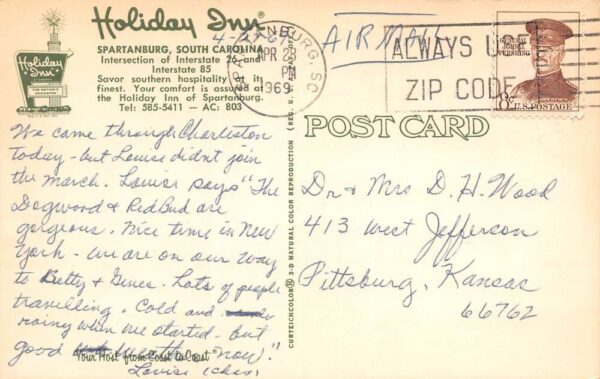 Holiday Inn®
SPARTANBURG, SOUTH CAROLINA
Intersection of Interstate 26 and
Interstate 85
Savor southern hospitality at its
finest. Your comfort is assured at
the Holiday Inn of Spartanburg.
Tel: 585-5411 — AC: 803
Holiday Inn
4-27-69
AIR MAIL
SPARTANBURG, SC
APR 28
PM
1969
ALWAYS U
ZIP CODE
PERSHING
8c U.S. POSTAGE
POST CARD
We came through Charleston
today - but Louise didn't join
the march. Louise says "The
Dogwood & Red Bud are
gorgeous. Nice time in New
York - we are on our way
to Betty & Genes. Lots of people
travelling. Cold and
rainy when we started - but
good weather now."
Louise (Chas)
Your Host from Coast to Coast
CURTEICHCOLOR® 3-D NATURAL COLOR REPRODUCTION
Dr & Mrs D. H. Wood
413 West Jefferson
Pittsburg, Kansas
66762